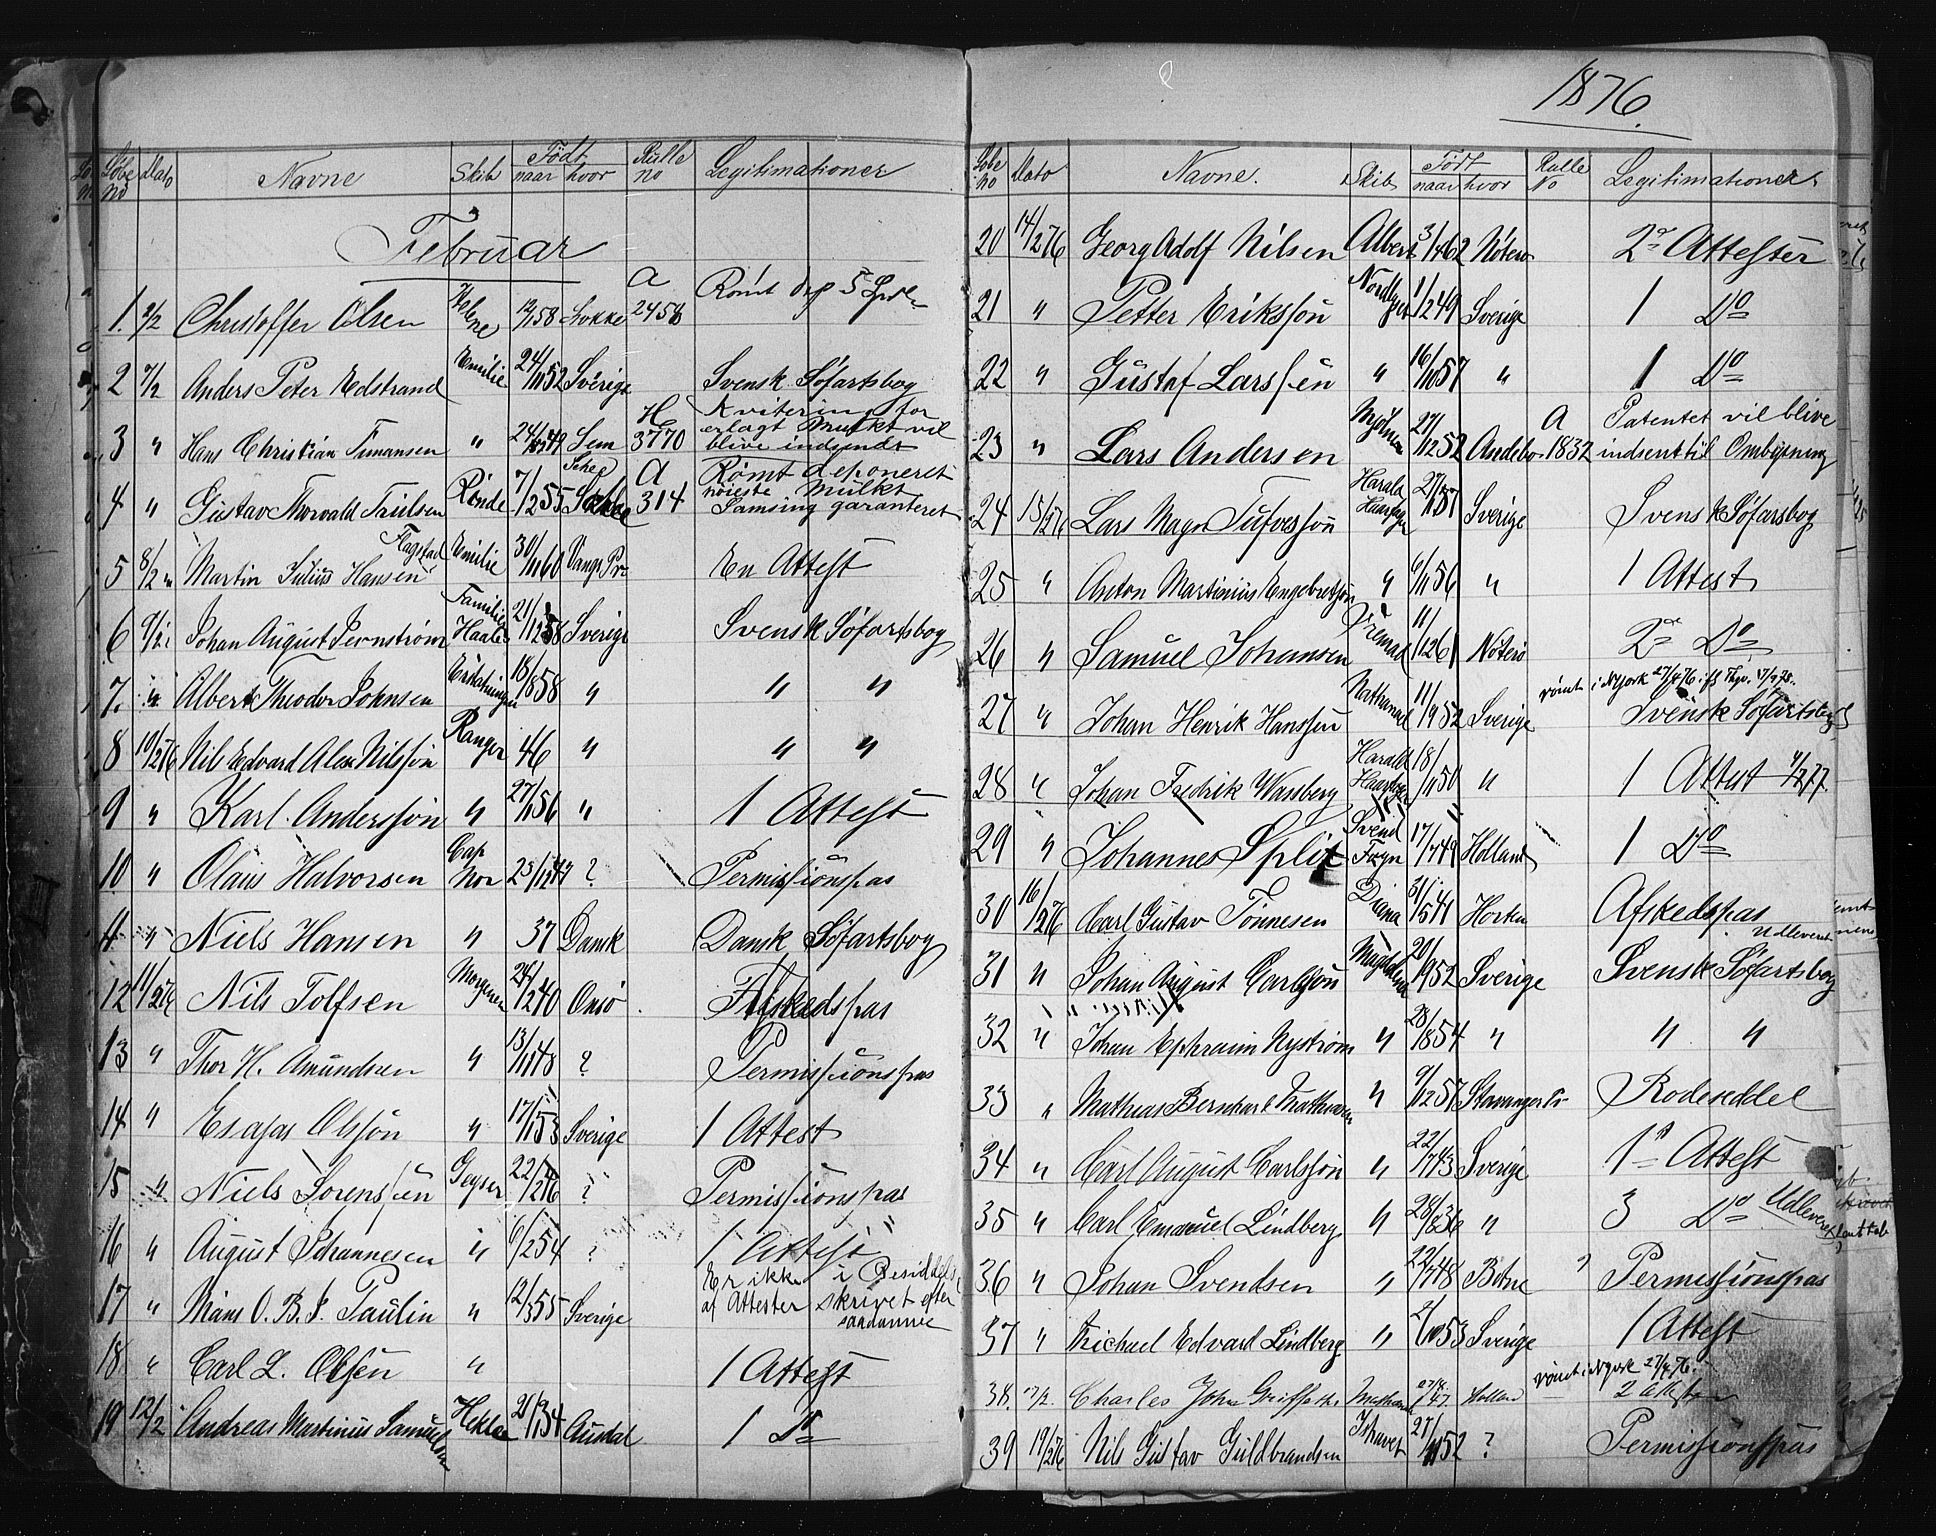 1876.
Løbe no Dato Navne Skib Født naar hvor Rulle no Legitimationer
Februar
1. 2/2 Christoffer Olsen Helene 58 Stokke A 2458 Rømt
2 7/2 Anders Peter Edstrand Emilie 24/10 52 Sverige Svensk Søfartsbog
3 " Hans Christian Timansen " 49 Sem H 3770 Kvitering for erlagt Mulkt vil blive indsendt
4 " Gustav Thorvald Trulsen Rønde 7/2 55 A 314 Rømt deponeret høieste Mulkt Samsing garanteret
5 8/2 Martin Julius Hansen Flagstad Emilie 30/11 60 Vangs Pr En Attest
6 9/2 Johan August Sernstrøm Familie Haab 21/12 58 Sverige Svensk Søfartsbog
7. " Albert Theodor Johnsen 18/8 58 " " "
8 10/2 76 Nils Edvard Alex Nilsson Ranger 46 " " "
9 " Karl Andersson " 27/1 56 " 1 Attest
10 " Olaus Halvorsen Cap Nor 25/12 47 ? Permissionspas
11 " Niels Hansen " 37 Dansk Dansk Søfartsbog
12 11/2 76 Nils Tolfsen Morgenen 24/2 40 Onsø Afskedspas
13 " Thor H. Amundsen " 13/11 48 ? Permissionspas
14 " Esajas Olsson " 17/1 53 Sverige 1 Attest
15 " Niels Sorenssen Geyser 22/2 46 ? Permissionspas
16 " August Johannesen " 6/2 54 ? 1 Attest
17 " Måns O. B. J. Paulin " 12/3 55 Sverige Er ikke i Besiddelse af Attester skrivet efter saadanne
18 " Carl L. Olsen " 1 Attest
19 12/2 Andreas Martinius Samuelsen Hekla 54 1 Do
Løbe no Dato Navne. Skib Født naar hvor Rulle No Legitimationer
20 14/2 76 Georg Adolf Nilsen Albert 3/1 62 Nøterø 2 Attester
21 " Petter Eriksson Nordlyset 1/12 49 Sverige 1 Do
22 " Gustaf Larssen " 16/10 57 " 1 Do
23 " Lars Andersen Mjølner 27/12 52 Andebo A 1832 Patentet vil blive indsent til Ombytning
24 15/2 76 Lars Magn Tufvesson Harald Haarfagr 27/ 57 Sverige Svensk Søfarsbog
25 " Anton Martinius Engebretson " 6/11 56 " 1 Attest
26 " Samuel Johansen Fremad 11/12 61 Nøterø 2 Do
27 " Johan Henrik Hanssen Nathanael 11/9 52 Sverige rømt i N York 27/4 76 Svensk Søfartsbog
28 " Johan Fredrik Wassberg Harald Haarfagr 18/11 50 " 1 Attest
29 " Johannes Split Svend Foyn 17/7 49 Holland 1 Do
30 16/2 76 Carl Gustav Tønnesen Diana 31/5 41 Horten Afskedspas Udleveret
31 " Johan August Carlsson Magdalena 20/9 52 Sverige Svensk Søfartsbog
32 " Johan Ephraim Nystrøm " 28/8 54 " " "
33 " Mathias Bernhart Mathiasen " 9/12 57 Stavanger Permissions Rodeseddel
34 " Carl August Carlsson " 22/7 43 Sverige 1 Attest
35 " Carl Emanuel Lindberg " 28/8 36 " 3 Do Udleveret
36 " Johan Svendsen " 22/7 48 Botne ? Permissionspas
37 " Michael Edvard Lindberg " 2/10 53 Sverige 1 Attest
38. 17/2. Charles John Griffeths 47. Holland rømt i N York 27/4 76 2 Attester
39 19/2 76 Nils Gustav Guldbrandsen Ishavet 27/11 52 ? Permissionspas